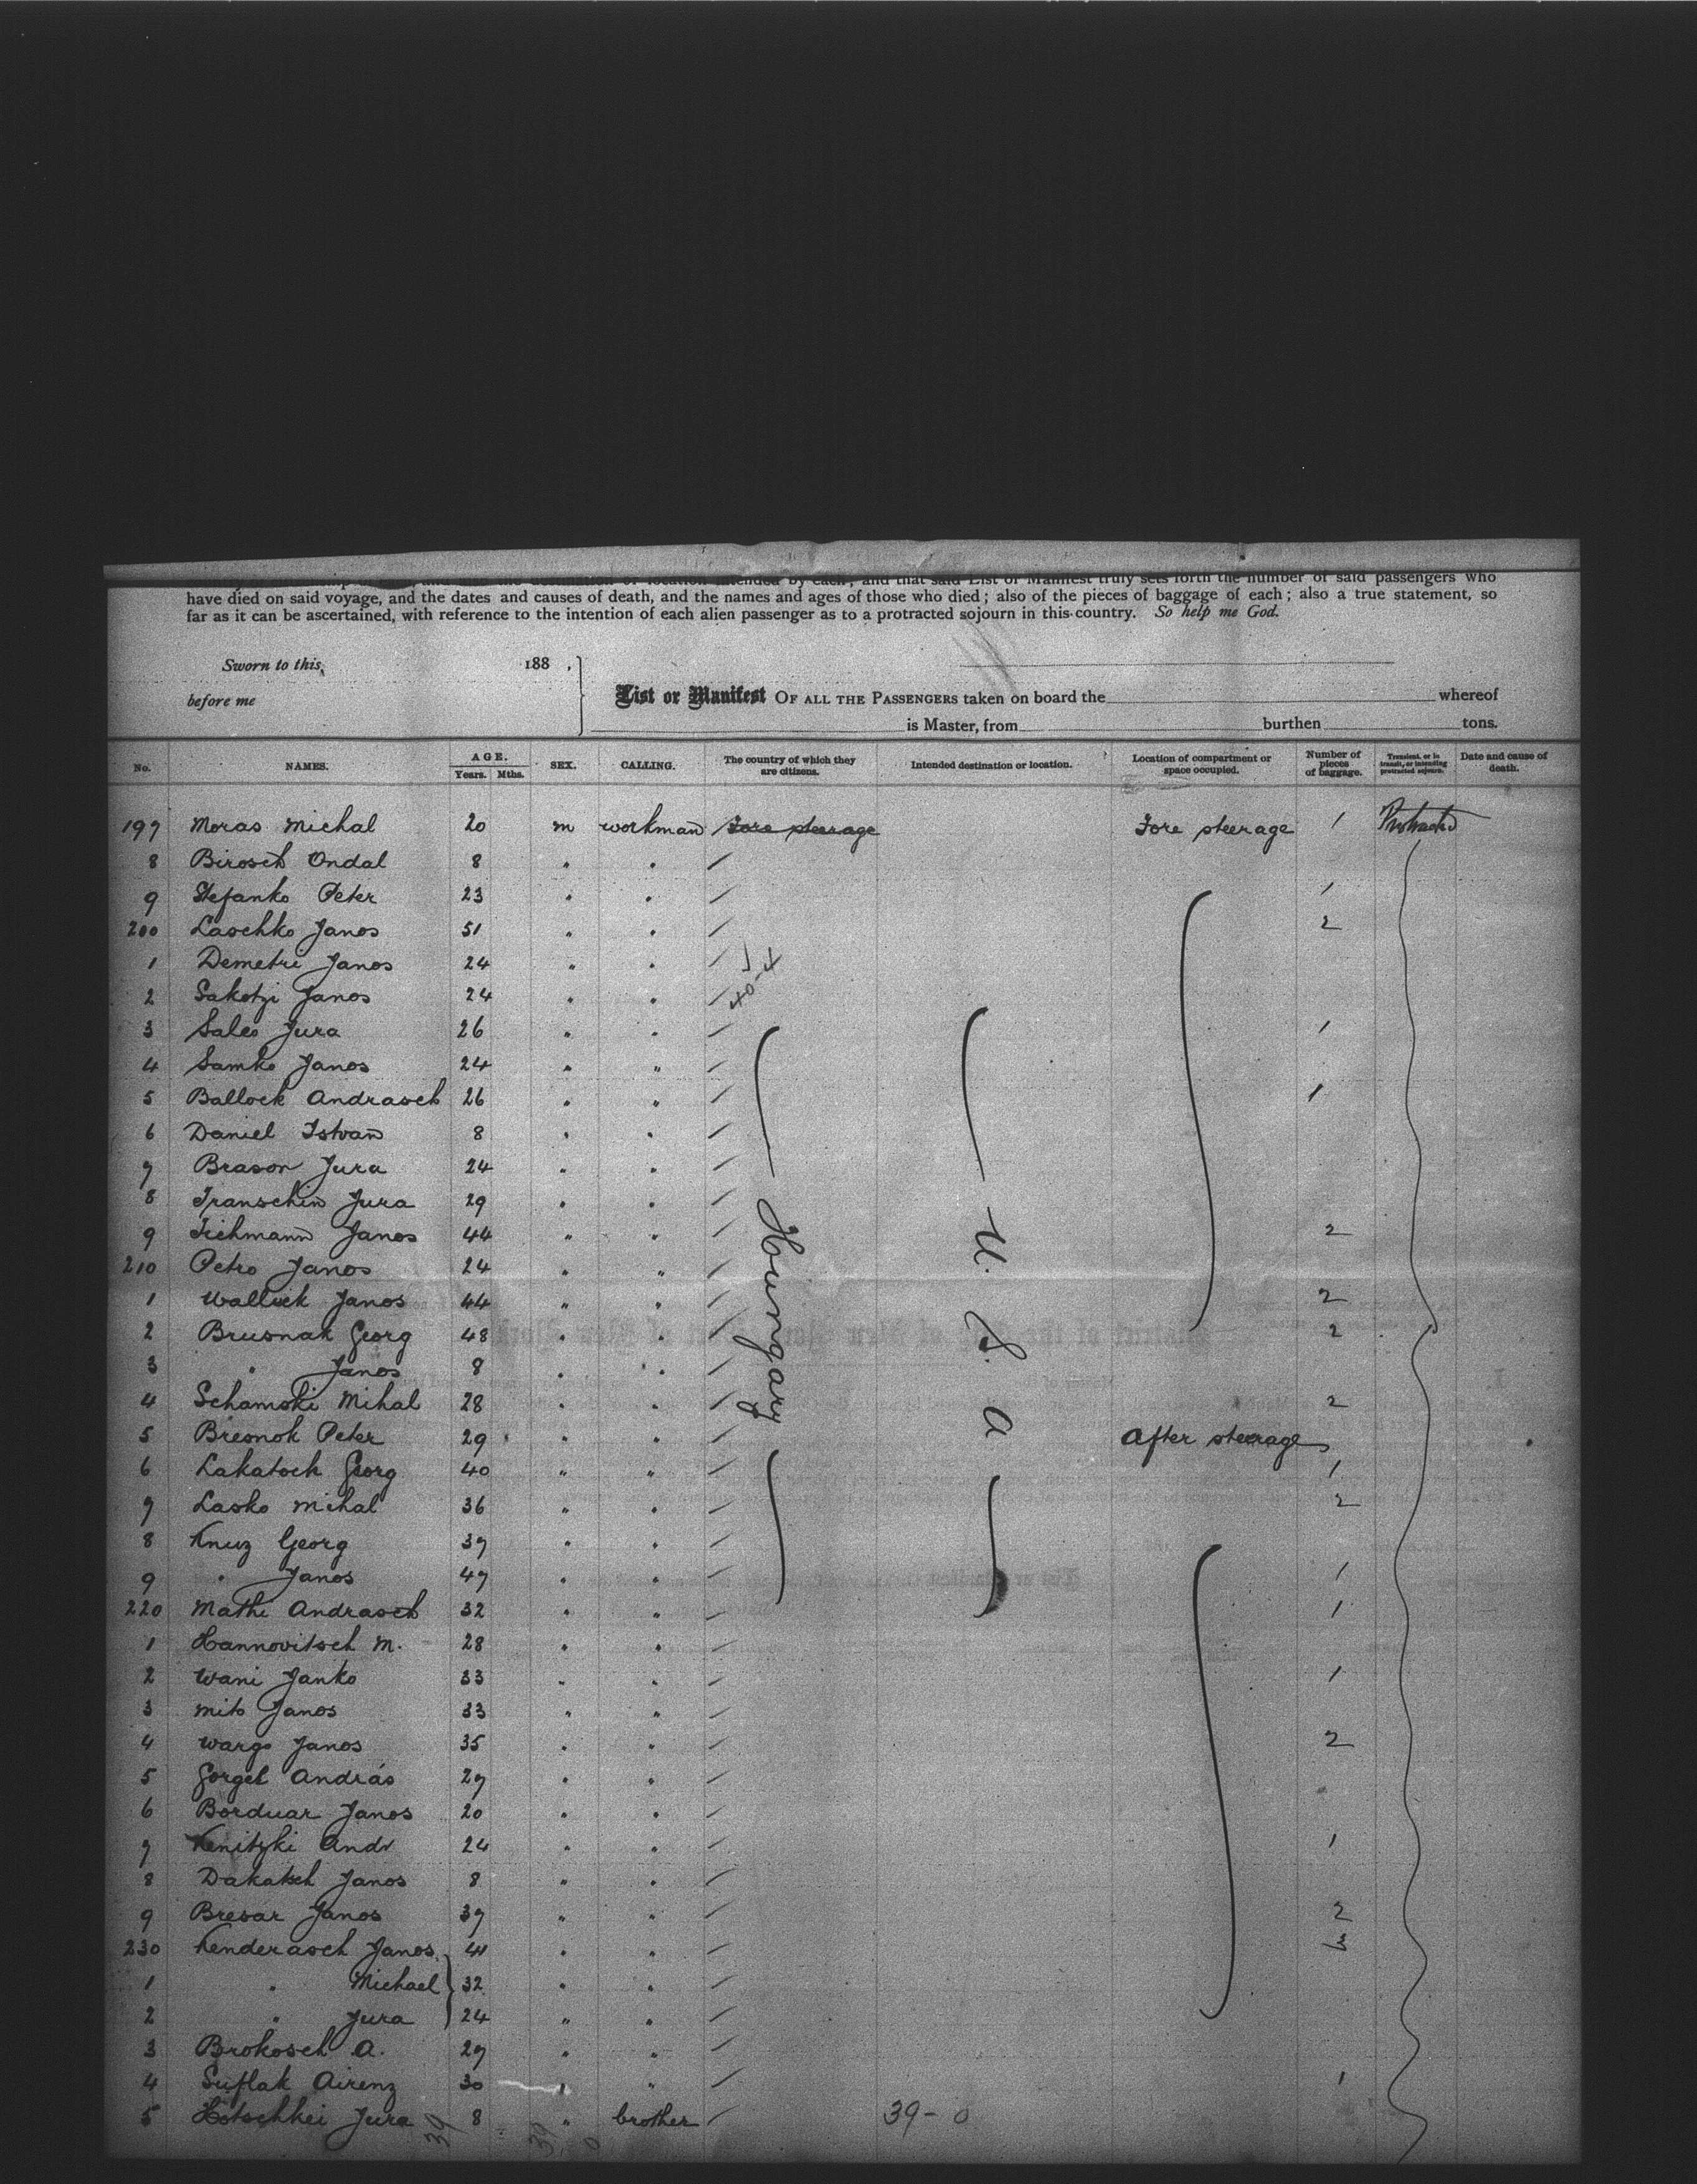 intended by each; and that said List or Manifest truly sets forth the number of said passengers who
have died on said voyage, and the dates and causes of death, and the names and ages of those who died; also of the pieces of baggage of each; also a true statement, so
far as it can be ascertained, with reference to the intention of each alien passenger as to a protracted sojourn in this country. So help me God.
Sworn to this, 188 ,
before me
List or Manifest OF ALL THE PASSENGERS taken on board the whereof
is Master, from burthen tons.
No. NAMES. AGE. Years. Mths. SEX. CALLING. The country of which they are citizens. Intended destination or location. Location of compartment or space occupied. Number of pieces of baggage. Transient, or in transit, or intending protracted sojourn. Date and cause of death.
197 Moras Michal 20 m workman Fore steerage Fore steerage 1 Protracted
8 Birosch Ondal 8 " "
9 Stefanko Peter 23 " " 1
200 Laschko Janos 51 " " 2
1 Demetri Janos 24 " "
2 Sakotzi Janos 24 " " 40-4
3 Saleo Jura 26 " " 1
4 Samko Janos 24 " "
5 Ballock Andrasch 26 " " 1
6 Daniel Istvan 8 " "
7 Brason Jura 24 " "
8 Transchin Jura 29 " "
9 Tichmann Janos 44 " " 2
210 Petro Janos 24 " "
1 Wallick Janos 44 " " Houngary U. S. a 2
2 Brusnak Georg 48 " " 2
3 " Janos 8 " "
4 Schamski Mihal 28 " " 2
5 Bresnok Peter 29 " " After steerage
6 Lakatoch Georg 40 " " 1
7 Lasko Mihal 36 " " 2
8 Knuz Georg 37 " "
9 " Janos 47 " " 1
220 Mathi Andrasch 32 " " 1
1 Hannovitsch M. 28 " "
2 Wani Janko 33 " " 1
3 Mito Janos 33 " "
4 Wargo Janos 35 " " 2
5 Gorgel András 27 " "
6 Borduar Janos 20 " "
7 Kenitzki Andr 24 " " 1
8 Dakatsch Janos 8 " "
9 Bresar Janos 37 " " 2
230 Kenderasch Janos 41 " " 3
1 " Michael 32 " "
2 " Jura 24 " "
3 Brokosch A. 27 " "
4 Suflak Airenz 30 " " 1
5 Hotschkei Jura 8 " brother 39- 0
39 39 0